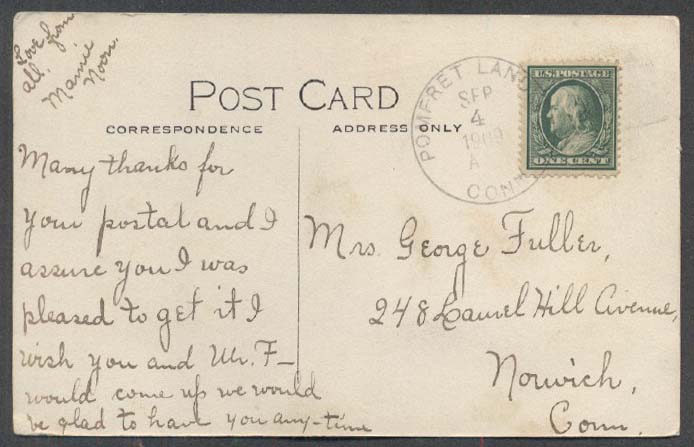 Love from
all.
Mamie
Noon.
POST CARD
CORRESPONDENCE
ADDRESS ONLY
POMFRET LAN
SEP
4
1909
A
CONN
U.S. POSTAGE
ONE CENT
Many thanks for
your postal and I
assure you I was
pleased to get it I
wish you and Mr. F—
would come up we would
be glad to have you any-time
Mrs. George Fuller,
248 Laurel Hill Avenue,
Norwich,
Conn.